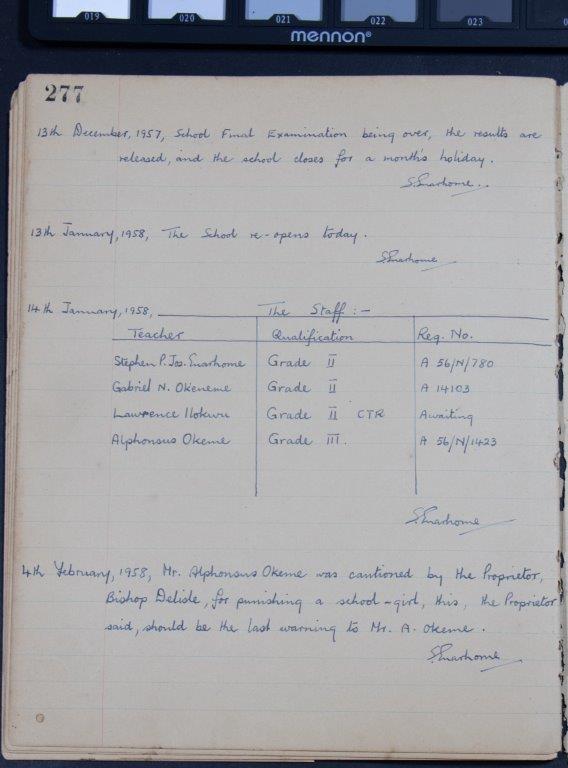 019 020 021 022 023
mennon®
277
13th December, 1957, School Final Examination being over, the results are
released, and the school closes for a month's holiday.
S. Enarhome..
13th January, 1958, The School re-opens today.
S. Enarhome
14th January, 1958, The Staff :-
Teacher Qualification Reg. No.
Stephen P. Jos. Enarhome Grade II A 56/N/780
Gabriel N. Okeneme Grade II A 14103
Lawrence Ilokwu Grade II CTR Awaiting
Alphonsus Okeme Grade III. A 56/N/1423
S. Enarhome
4th February, 1958, Mr. Alphonsus Okeme was cautioned by the Proprietor,
Bishop Delisle, for punishing a school-girl, this, the Proprietor
said, should be the last warning to Mr. A. Okeme.
S. Enarhome